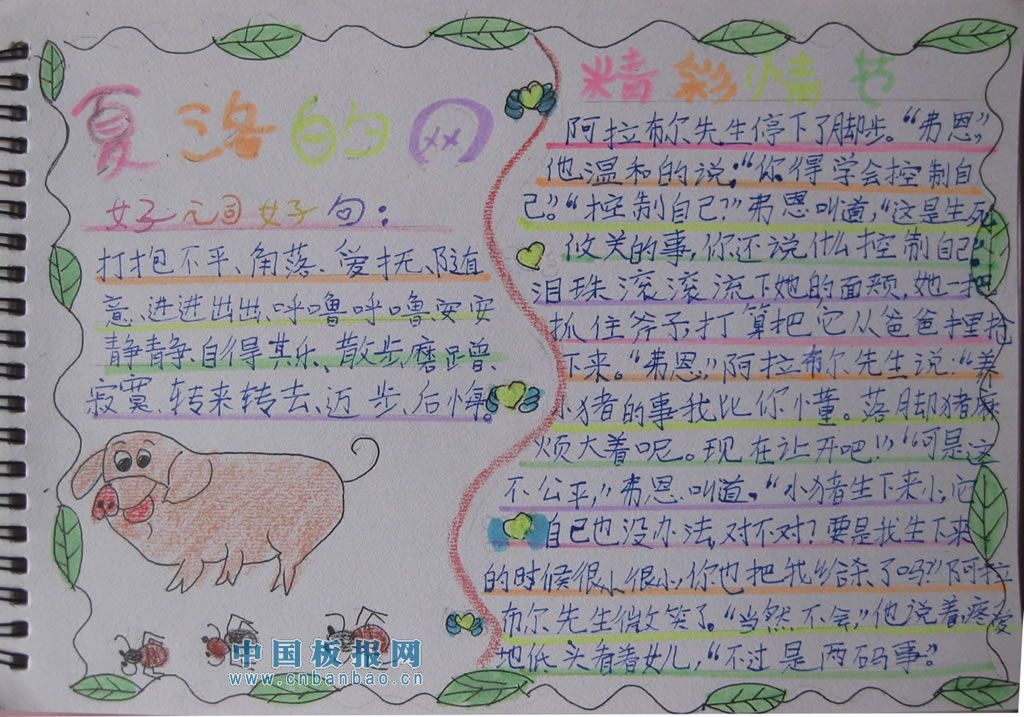 夏洛的网
好词好句：
打抱不平、角落、爱抚、随
意、进进出出、呼噜呼噜、安安
静静、自得其乐、散步、磨蹭、
寂寞、转来转去、迈步、后悔。
精彩情节
阿拉布尔先生停下了脚步。“弗恩，”
他温和的说：“你得学会控制自
己。”“控制自己？”弗恩叫道，“这是生死
攸关的事，你还说什么控制自己”
泪珠滚滚流下她的面颊，她一把
抓住斧子，打算把它从爸爸手里抢
下来。“弗恩，”阿拉布尔先生说：“养
小猪的事我比你懂。落脚猪麻
烦大着呢。现在让开吧！”“可是这
不公平，”弗恩叫道。“小猪生下来小，它
自己也没办法，对不对？要是我生下来
的时候很小很小，你也把我给杀了吗？”阿拉
布尔先生微笑了。“当然不会，”他说着，疼爱
地低头看着女儿，“不过是两码事。”
中国板报网
www.cnbanbao.cn